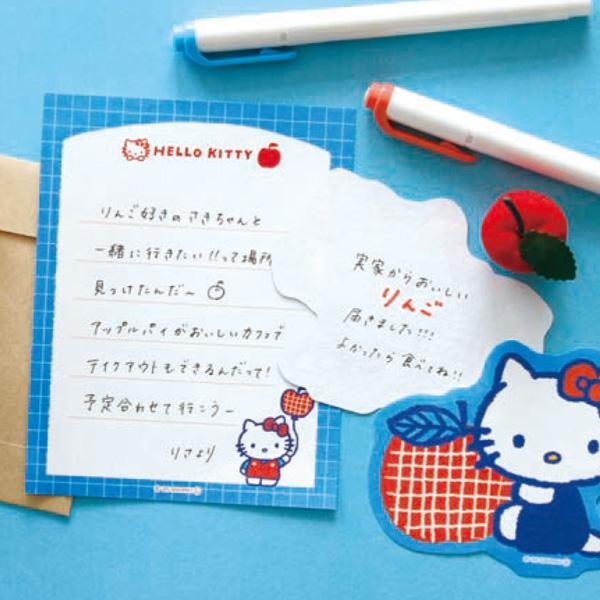 HELLO KITTY
りんご好きのさきちゃんと
一緒に行きたい!!って場所
見っけたんだ〜
アップルパイがおいしいカフェで
テイクアウトもできるんだって!
予定合わせて行こうー
りさより
実家からおいしい
りんご
届きました!!!
よかったら食べてね!!